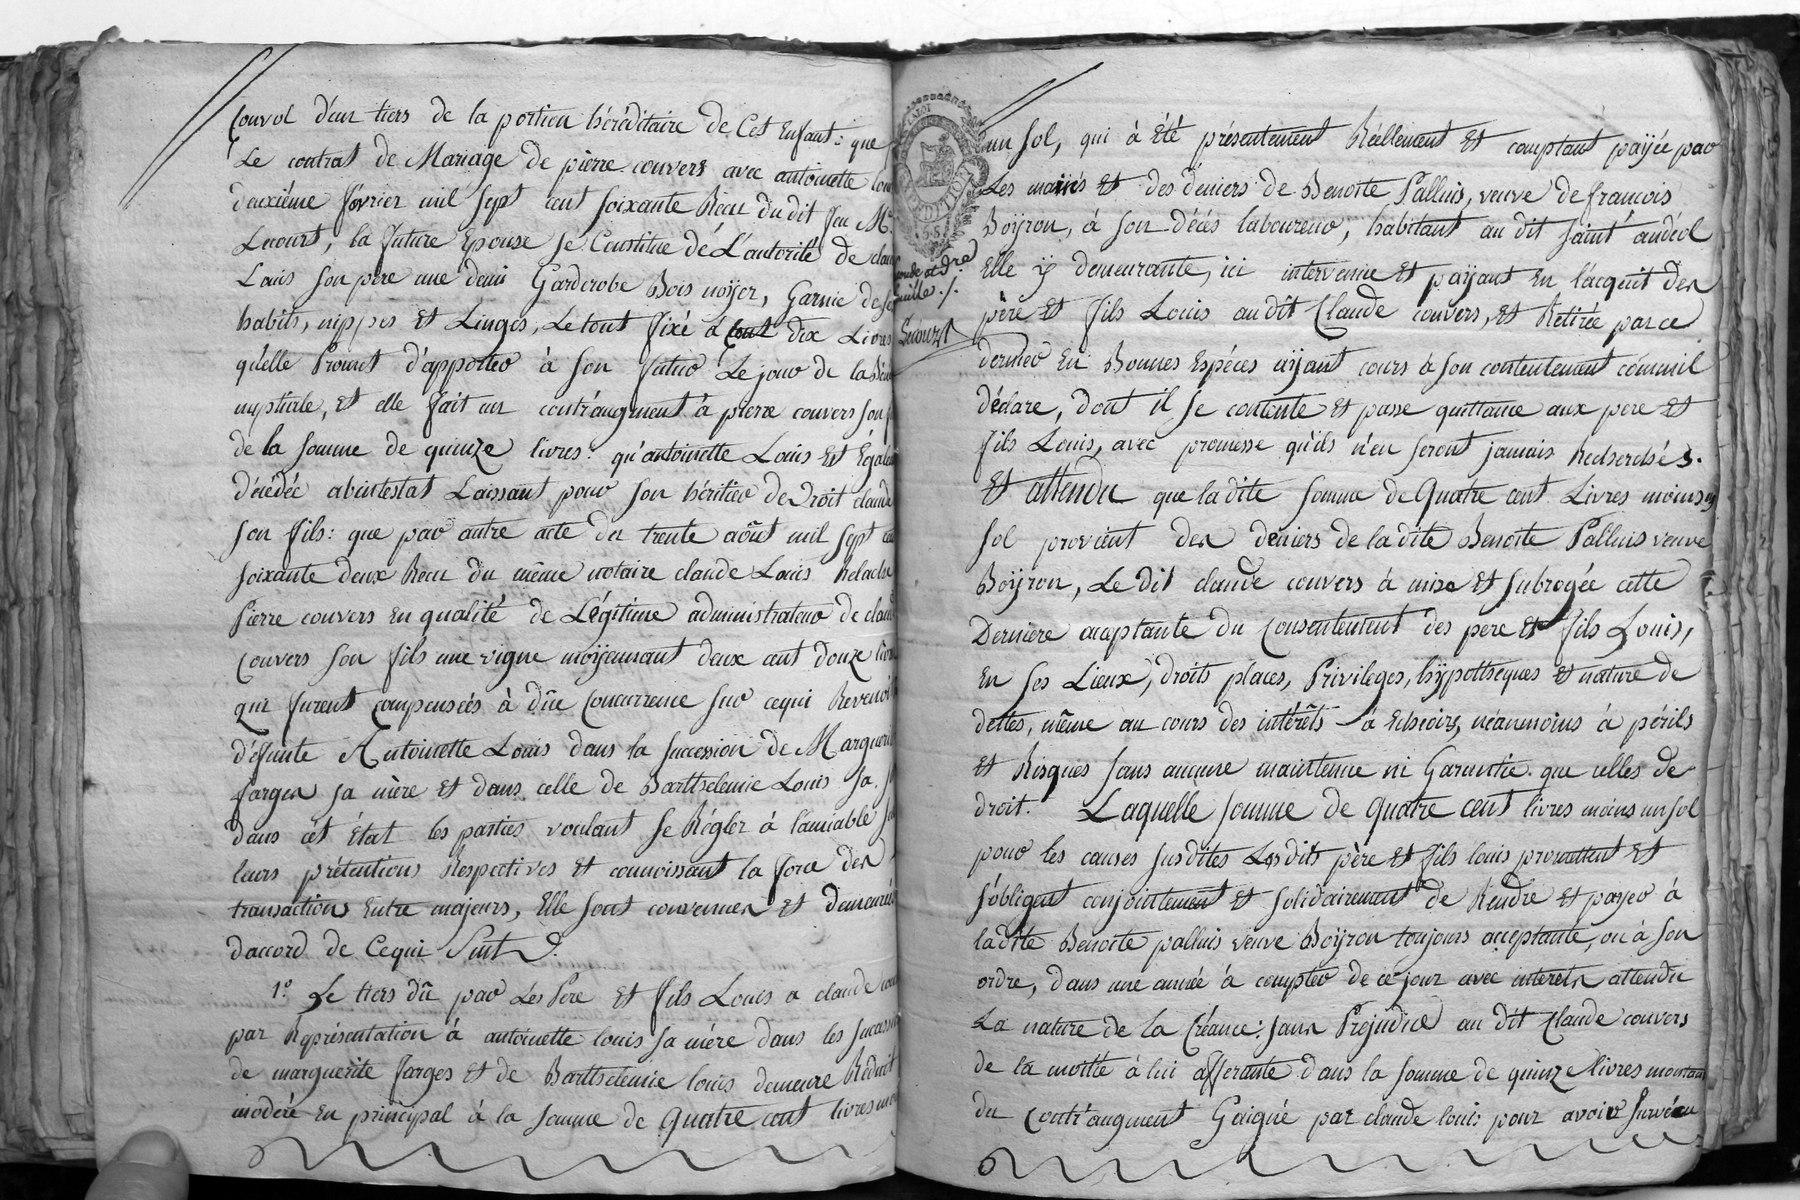 Convol d'un tiers de la portion héréditaire de Cet Enfant: que
Le contrat de Mariage de pierre couvers avec antoinette
deuxiéme février mil sept cent soixante Recu dudit feu Me
Lecourt, la future Epouse se Constitue de L'autorité de
Louis son père une demi Garderobe Bois noÿer, Garnie de ses
habits, nippes et Linges, Le tout fixé à Cent dix Livres
qu'elle Promet d'apporter à son futur Le jour de la
nuptiale, et elle fait un contr'augment à pierre couvers son
de la somme de quinze livres: qu'antoinette Louis est
décédée abintestat Laissant pour son héritier de Droit claude
son fils: que par autre acte du trente aôut mil sept
soixante deux Recu du même notaire claude Louis
Pierre couvers en qualité de Légitime administrateur de
Couvers son fils une vigne moÿennant deux cent douze
qui furent compensées à dûe Concurrence sur cequi
d'éfunte Antoinette Louis dans la succession de
farges sa mère et dans celle de Barthelemie Louis sa
dans cet état les parties voulant se Régler à l'amiable
leurs prétentions Respectives et connoissant la force des
transactions entre majeurs, Elle sont convenues et
daccord de Cequi Suit.
1o. Le tiers dû par Les Père et fils Louis a claude
par Représentation à antoinette louis sa mère dans les
de marguerite farges et de Barthelemie louis demeure Réduit
modéré en principal à la somme de quatre cent livres
un sol, qui à été présentement Réellement et comptant païée par
Les mains et des deniers de Benoite Palluis, veuve de francois
Boÿron, à son décés laboureur, habitant au dit saint andéol
Elle ÿ demeurante, ici intervenue et païant en l'acquit des
père et fils Louis audit Claude couvers, et Retirée par ce
dernier en Bonnes Espéces aÿant cours à son contentement comm'il
déclare, dont il se contente et passe quittance aux pere et
fils Louis, avec promesse qu'ils n'en seront jamais Recherchés.
et attendu que la dite somme de quatre cent Livres moins un
sol provient des deniers de la dite Benoite Palluis veuve
Boÿron, Le dit claude couvers à mise et subrogée cette
Derniere acceptante du Consentement des pere et fils Louis,
en ses Lieux, droits places, Privileges, hÿpotheques et nature de
dettes, même au cours des intérêts à Echeoir, néanmoins à périls
et Risques sans aucune maintenue ni Garantie que celles de
droit. Laquelle somme de quatre cent livres moins un sol
pour les causes susdites Lesdits père et fils louis promettent et
s'obligent conjointement et solidairement de Rendre et payer à
ladite Benoite palluis veuve Boÿron toujours acceptante, ou à son
ordre, dans une année à compter de ce jour avec interets attendu
La nature de la Créance: sans Préjudice au dit Claude couvers
de la moitié à lui afferante dans la somme de quinze livres montant
du contr'augment Gaigné par claude louis pour avoir survécu